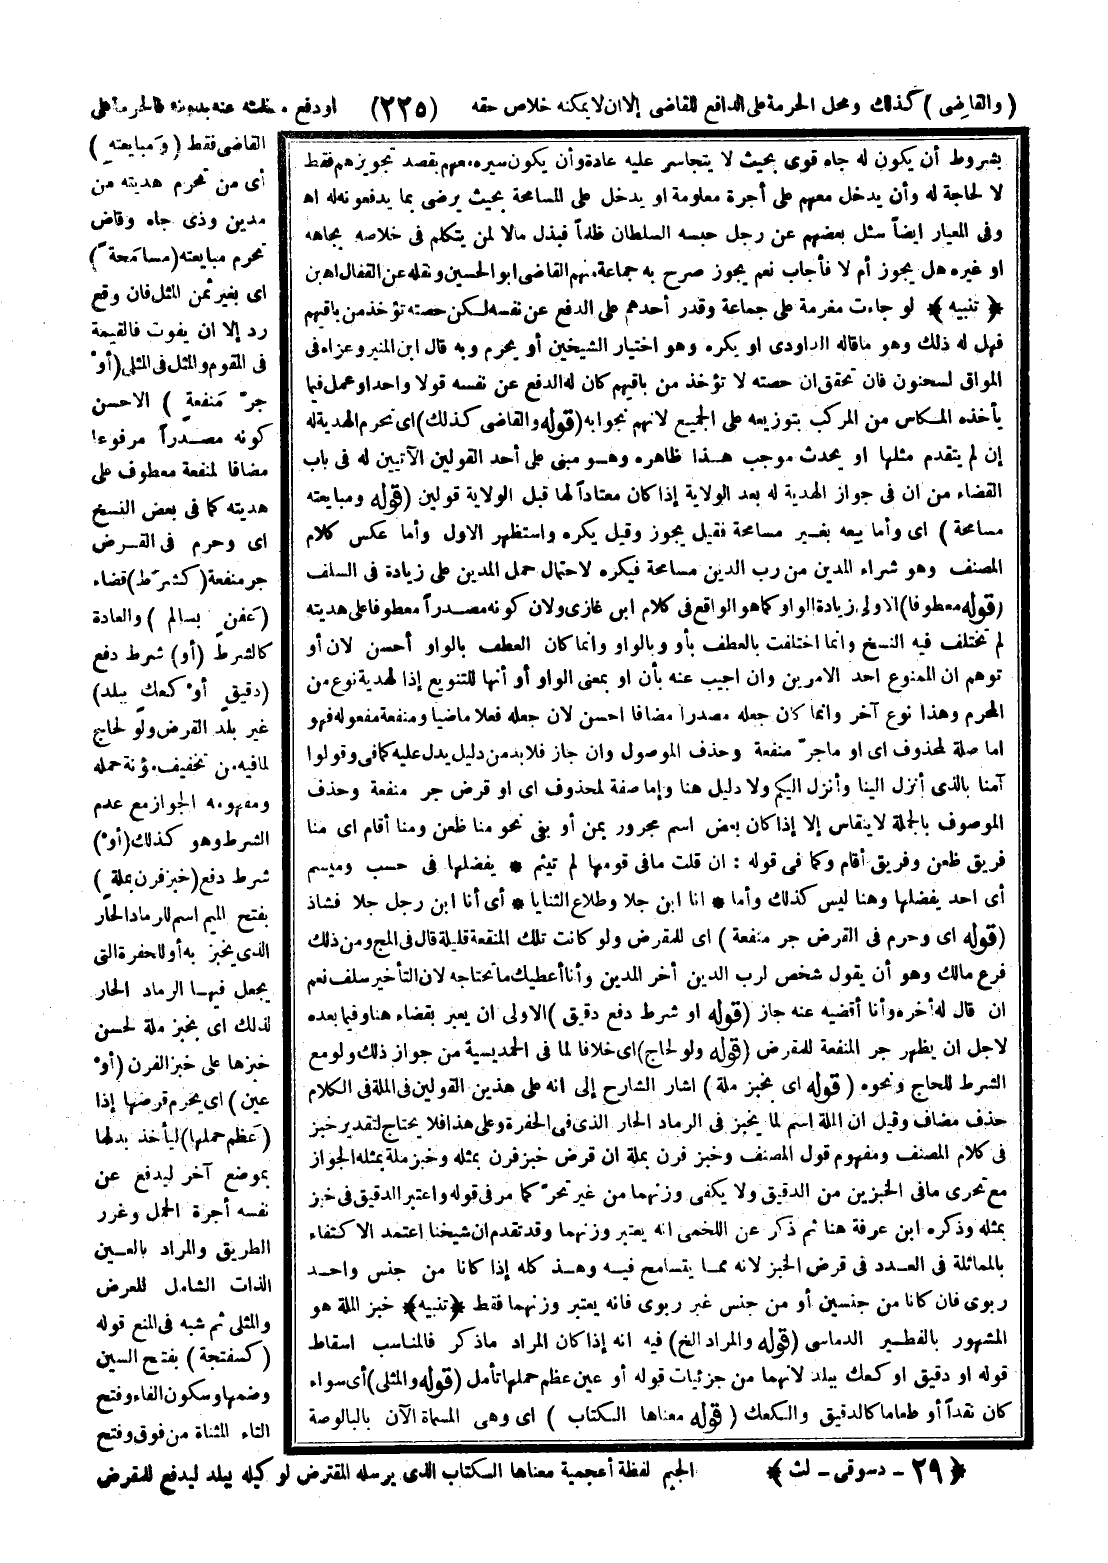 (والقاضى) كذلك ومحل الحرمة على الدافع للقاضى إلا ان لا يمكنه خلاص حقه (٢٢٥) او دفع مظلمة عنه بدونه فالحرمة على
القاضى فقط (وَمبايعتهِ)
أى من تحرم هديته من
مدين وذى جاه وقاض
تحرم مبايعته (مسامَحة ً)
اى بغير ثمن المثل فان وقع
رد إلا ان يفوت فالقيمة
فى المقوم والمثل فى المثلى (أو ْ
جر ّ مَنفعةٍ) الاحسن
كونه مصدراً مرفوعا
مضافا لمنفعة معطوف على
هديته كما فى بعض النسخ
اى وحرم فى القرض
جر منفعة (كشرَط) قضاء
(عَفنٍ بسالم) والعادة
كالشرط (أو) شرط دفع
(دقيقٍ أو ْ كعكٍ ببلد)
غير بلد القرض ولو لحاج
لما فيه من تخفيف مؤنة حمله
ومفهومه الجواز مع عدم
الشرط وهو كذلك (أو ْ)
شرط دفع (خبز فرن بملةٍ)
بفتح الميم اسم للرماد الحار
الذى يخبز به أو للحفرة التى
يجعل فيها الرماد الحار
لذلك اى بخبز ملة لحسن
خبزها على خبز الفرن (أو ْ
عين) اى يحرم قرضها إذا
(عَظم حملها) ليأخذ بدلها
بموضع آخر ليدفع عن
نفسه أجرة الحمل وغرر
الطريق والمراد بالعين
الذات الشامل للعرض
والمثلى ثم شبه فى المنع قوله
(كسفتجة) بفتح السين
وضمها وسكون الفاء وفتح
التاء المثناة من فوق وفتح
الجيم لفظة أعجمية معناها الكتاب الذى يرسله المقترض لوكيله ببلد ليدفع للمقرض
بشروط أن يكون له جاه قوى بحيث لا يتجاسر عليه عادة وأن يكون سيره معهم بقصد تجويزهم فقط
لا لحاجة له وأن يدخل معهم على أجرة معلومة او يدخل على المسامحة بحيث يرضى بما يدفعونه له اه
وفى المعيار ايضاً سئل بعضهم عن رجل حبسه السلطان ظلماً فبذل مالا لمن يتكلم فى خلاصه بجاهه
او غيره هل يجوز أم لا فأجاب نعم يجوز صرح به جماعة منهم القاضى ابو الحسين ونقله عن القفال اه بن
﴿ تنبيه ﴾ لو جاءت مغرمة على جماعة وقدر أحدهم على الدفع عن نفسه لكن حصته تؤخذ من باقيهم
فهل له ذلك وهو ما قاله الداودى او يكره وهو اختيار الشيخين أو يحرم وبه قال ابن المنير وعزاه فى
المواق لسحنون فان تحقق ان حصته لا تؤخذ من باقيهم كان له الدفع عن نفسه قولا واحدا وعمل فيما
يأخذه المكاس من المركب بتوزيعه على الجميع لانهم نجوا به (قوله والقاضى كذلك) اى تحرم الهدية له
إن لم يتقدم مثلها او يحدث موجب هذا ظاهره وهو مبنى على أحد القولين الآتيين له فى باب
القضاء من ان فى جواز الهدية له بعد الولاية إذا كان معتاداً لها قبل الولاية قولين (قوله ومبايعته
مسامحة) اى وأما بيعه بغير مسامحة فقيل يجوز وقيل يكره واستظهر الاول وأما عكس كلام
المصنف وهو شراء المدين من رب الدين مسامحة فيكره لاحتمال حمل المدين على زيادة فى السلف
(قوله معطوفا) الاولى زيادة الواو كما هو الواقع فى كلام ابن غازى ولان كونه مصدراً معطوفا على هديته
لم تختلف فيه النسخ وانما اختلفت بالعطف بأو وبالواو وانما كان العطف بالواو أحسن لان أو
توهم ان الممنوع احد الامرين وان اجيب عنه بأن او بمعنى الواو أو أنها للتنويع إذ الهدية نوع من
المحرم وهذا نوع آخر وانما كان جعله مصدرا مضافا احسن لان جعله فعلا ماضيا ومنفعة مفعوله فهو
اما صلة لمحذوف اى او ما جر ّ منفعة وحذف الموصول وان جاز فلا بد من دليل يدل عليه كما فى وقولوا
آمنا بالذى أنزل الينا وأنزل اليكم ولا دليل هنا وإما صفة لمحذوف اى او قرض جر منفعة وحذف
الموصوف بالجملة لا ينقاس إلا إذا كان بعض اسم مجرور بمن أو بفى نحو منا ظعن ومنا أقام اى منا
فريق ظعن وفريق أقام وكما فى قوله : ان قلت ما فى قومها لم تيثم * يفضلها فى حسب وميسم
أى احد يفضلها وهنا ليس كذلك وأما * انا ابن جلا وطلاع الثنايا * أى أنا ابن رجل جلا فشاذ
(قوله اى وحرم فى القرض جر منفعة) اى للمقرض ولو كانت تلك المنفعة قليلة قال فى المج ومن ذلك
فرع مالك وهو أن يقول شخص لرب الدين أخر المدين وأنا أعطيك ما تحتاجه لان التأخير سلف نعم
ان قال له أخره وأنا أقضيه عنه جاز (قوله او شرط دفع دقيق) الاولى ان يعبر بقضاء هنا وفيما بعده
لاجل ان يظهر جر المنفعة للمقرض (قوله ولو لحاج) اى خلافا لما فى الحمديسية من جواز ذلك ولو مع
الشرط للحاج ونحوه (قوله اى بخبز ملة) اشار الشارح إلى انه على هذين القولين فى الملة فى الكلام
حذف مضاف وقيل ان الملة اسم لما يخبز فى الرماد الحار الذى فى الحفرة وعلى هذا فلا يحتاج لتقدير خبز
فى كلام المصنف ومفهوم قول المصنف وخبز فرن بملة ان قرض خبز فرن بمثله وخبز ملة بمثله الجواز
مع تحرى ما فى الخبزين من الدقيق ولا يكفى وزنهما من غير تحر ّ كما مر فى قوله واعتبر الدقيق فى خبز
بمثله وذكره ابن عرفة هنا ثم ذكر عن اللخمى انه يعتبر وزنهما وقد تقدم ان شيخنا اعتمد الاكتفاء
بالمماثلة فى العدد فى قرض الخبز لانه مما يتسامح فيه وهذ كله إذا كانا من جنس واحد
ربوى فان كانا من جنسين أو من جنس غير ربوى فانه يعتبر وزنهما فقط ﴿تنبيه﴾ خبز الملة هو
المشهور بالفطير الدماسى (قوله والمراد الخ) فيه انه إذا كان المراد ما ذكر فالمناسب اسقاط
قوله او دقيق او كعك ببلد لانهما من جزئيات قوله أو عين عظم حملها تأمل (قوله والمثلى) أى سواء
كان نقداً أو طعاما كالدقيق والكعك (قوله معناها الكتاب) اى وهى المسماة الآن بالبالوصة
﴿ ٢٩ - دسوقى - لث ﴾